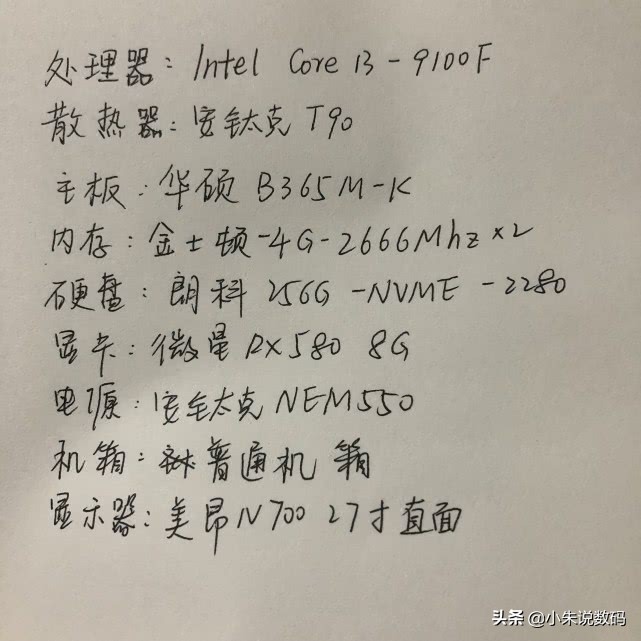 处理器：Intel Core i3-9100F
散热器：安钛克 T90
主板：华硕 B365M-K
内存：金士顿-4G-2666Mhz×2
硬盘：朗科 256G -NVME -2280
显卡：微星 RX580 8G
电源：安钛克 NEM550
机箱：普通机箱
显示器：美昂 N700 27寸直面
头条 @小朱说数码